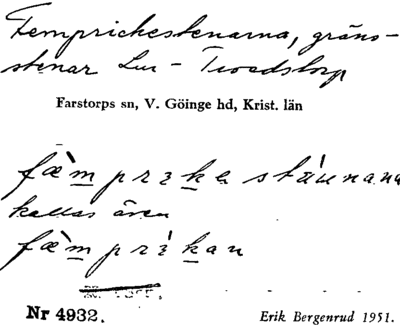 Femprickestenarna, gräns-
stenar Lur - Tvedstorp
Farstorps sn, V. Göinge hd, Krist. län
fæ̀mprɩkestäunana
kallas även
fæ̀mprɩ́kan
Nr 4932.
Erik Bergenrud 1951.